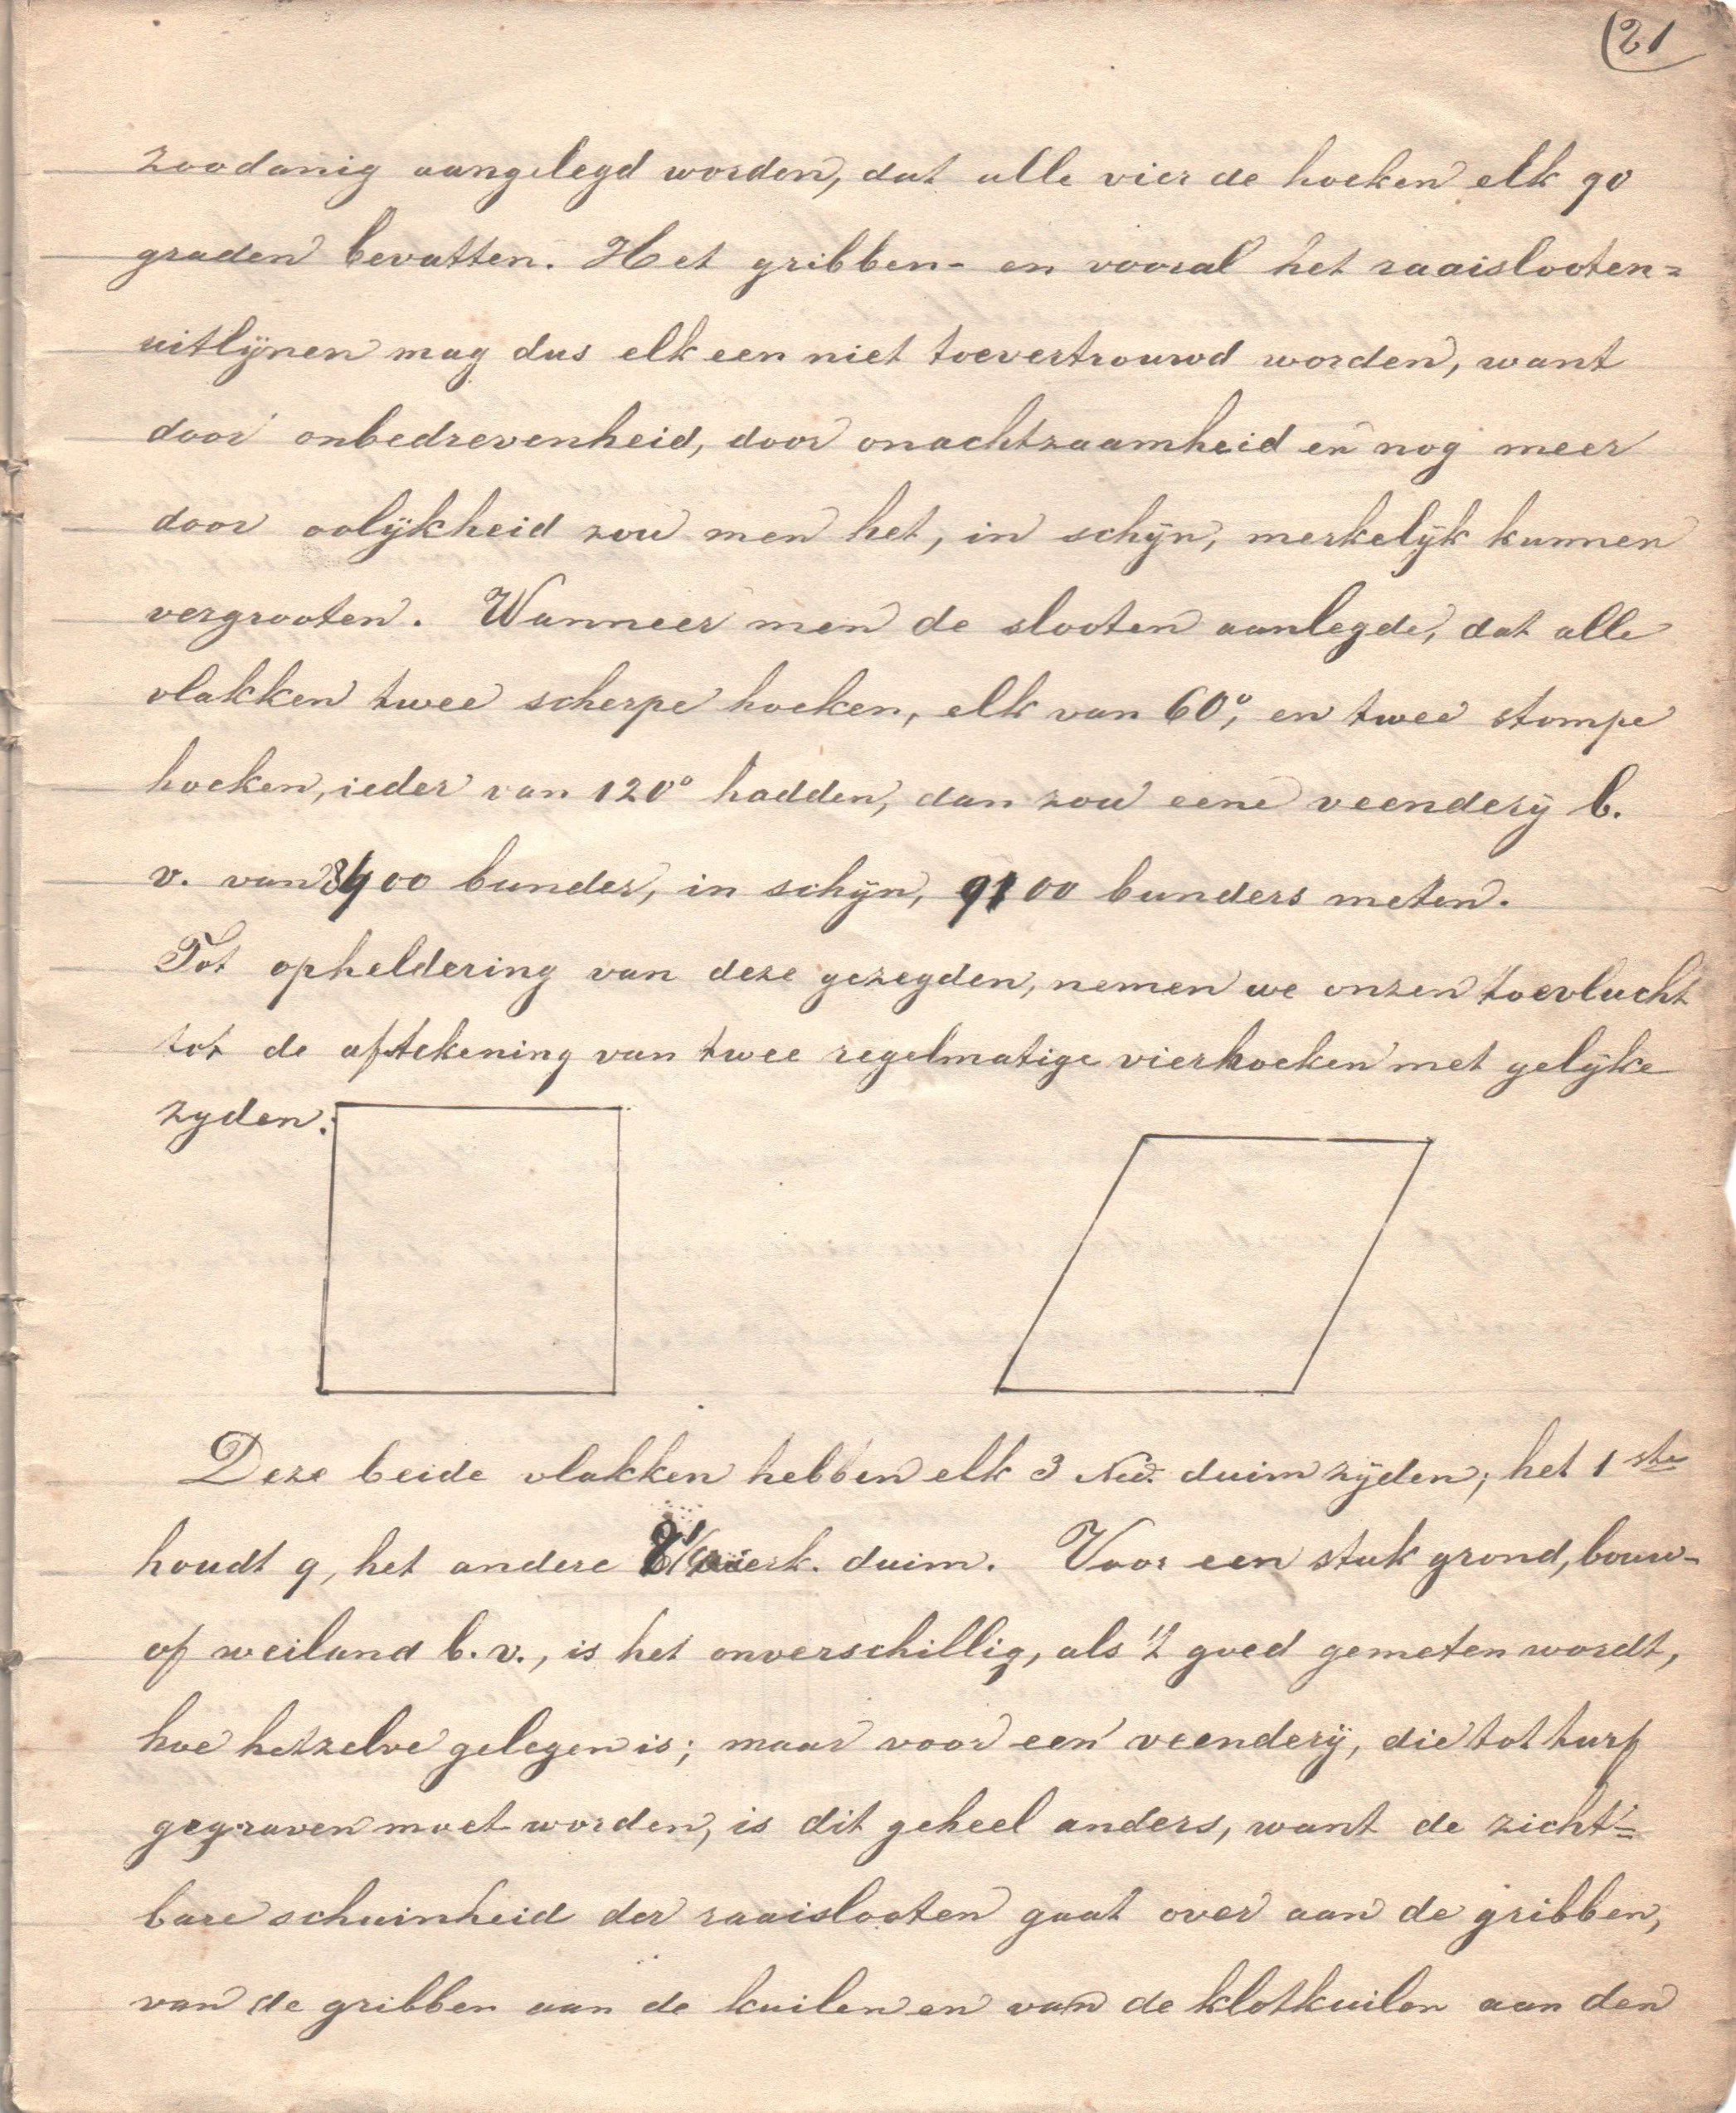 (21
zoodanig aangelegd worden, dat alle vier de hoeken elk 90
graden bevatten. Het gribben- en vooral het raaislooten=
uitlijnen mag dus elk een niet toevertrouwd worden, want
door onbedrevenheid, door onachtzaamheid en nog meer
door oolijkheid zou men het, in schijn, merkelijk kunnen
vergrooten. Wanneer men de slooten aanlegde, dat alle
vlakken twee scherpe hoeken, elk van 60°, en twee stompe
hoeken, ieder van 120° hadden, dan zou eene veenderij b.
v. van 8400 bunder, in schijn, 9100 bunders meten.
Tot opheldering van deze gezegden, nemen we onzen toevlucht
tot de aftekening van twee regelmatige vierhoeken met gelijke
zyden:
Deze beide vlakken hebben elk 3 Ned. duim zijden; het 1ste
houdt 9, het andere vierk. duim. Voor een stuk grond, bouw-
of weiland b.v., is het onverschillig, als 't goed gemeten wordt,
hoe hetzelve gelegen is; maar voor een veenderij, die tot turf
gegraven moet worden, is dit geheel anders, want de zicht=
bare schuinheid der raaislooten gaat over aan de gribben,
van de gribben aan de kuilen en van de klotkuilen aan den